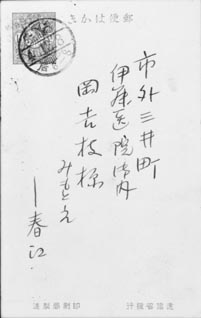 郵便はがき
市外三井町
伊藤医院内
岡吉枝様
みもとえ
春江
印刷局製造
逓信省発行